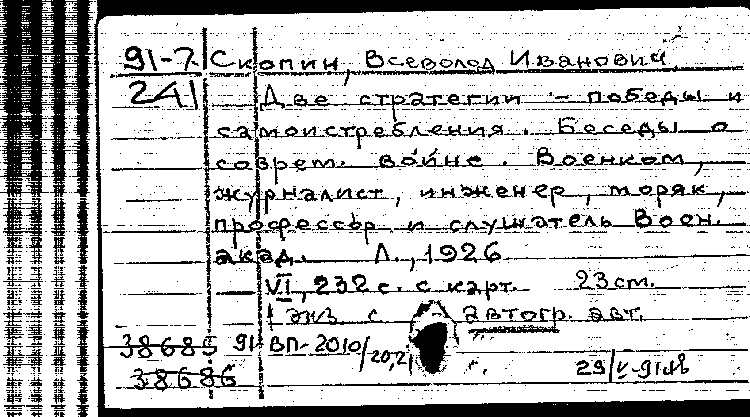 91-7 Скопин, Всеволод Иванович.
241 Две стратегии - победы и
самоистребления. Беседы о
соврем. войне. Военком,
журналист, инженер, моряк,
профессор и слушатель Воен.
акад. Л., 1926
VI, 232 с. с карт. 23 cm.
1 экз. с автогр. авт.
38685 91 ВП-2010/20,21
38686 29/V-91